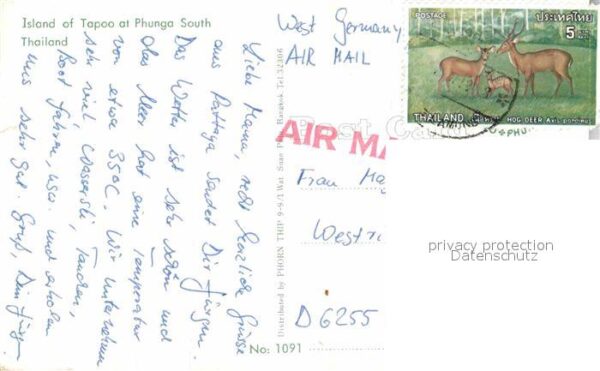 Island of Tapoo at Phunga South
Thailand
Liebe Mama, recht herzliche Grüsse
aus Pattaya sendet Dir Jürgen.
Das Wetter ist sehr schön und
das Meer hat eine Temperatur
von etwa 35°C. Wir unternehmen
sehr viel Wasserski, Tauchen,
Boot fahren, usw. und erholen
uns sehr gut. Gruß, Dein Jürgen
Distributed by PHORN THIP 9-9/1 Wat. Suan Bangkok Tel.
No: 1091
West Germany
AIR MAIL
POSTAGE
ประเทศไทย
5
THAILAND
HOG DEER Axis porcinus
Post Card
AIR MA
Frau Ma
D 6255
privacy protection
Datenschutz